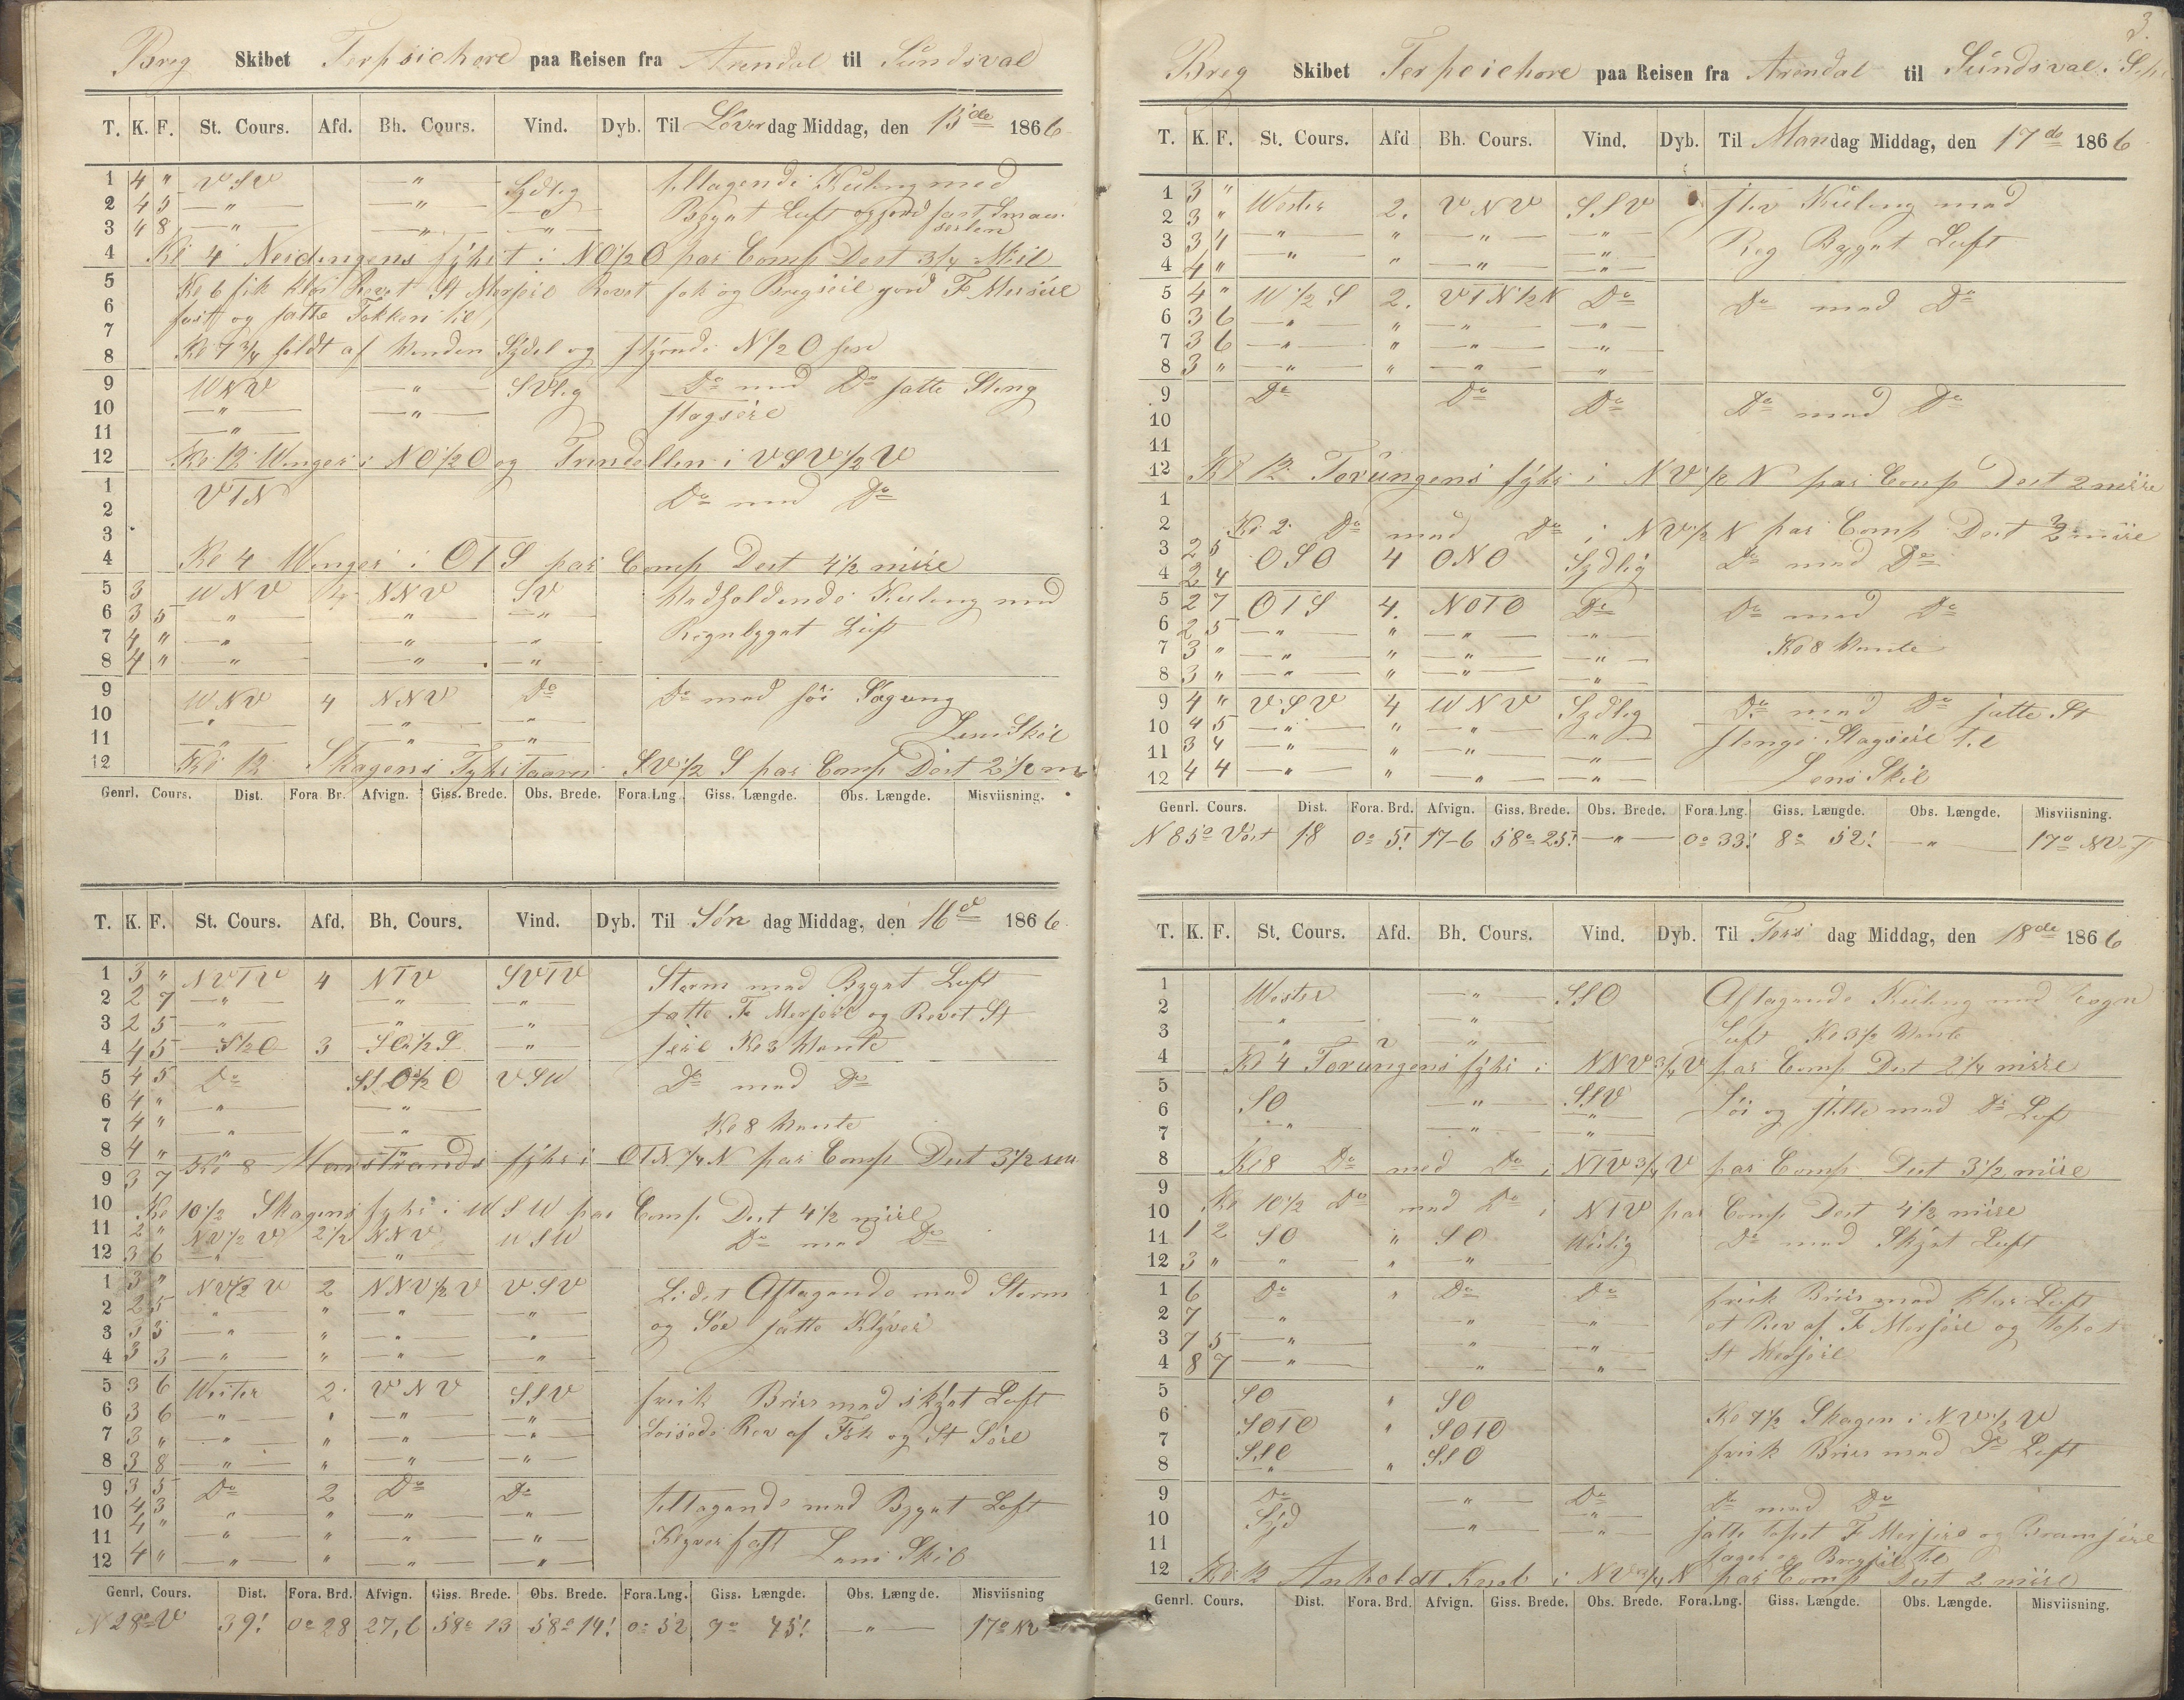 Breg Skibet Terpsichore paa Reisen fra Arendal til Sundsval
T. K. F. St. Cours. Afd. Bh. Cours. Vind. Dyb. Til Löverdag Middag, den 15de 1866
1 4 " VSV — " — Sydlig tiltagende Kuling med
2 4 5 — " — — " — — " — Bygat Luft og gjord fast Smau
3 4 8 — " — — " — — " — seilen
4 Kl 4 Neidingens fyhr i NO1/2O par Comp Dest 3/4 Miil
5 Kl 6 fik klos Revet St Merseil Revet fok og Bregseil gjord F Merseil
6 fast og satte Fokken til
7
8 Kl 7 3/4 faldt af Vinden Sydel og styrede N1/2O
9 WNV — " — SVlig Do med Do satte Steng
10 — " — — " — stagseil
11 — " —
12 Kl 12 Winger i NO1/2O og Trindellen i VSV1/2V
1 VTN Do med Do
2
3
4 Kl 4 Winger i OTS par Comp Dest 4 1/2 miil
5 3 WNV 4 NNV SV Vedholdende Kuling med
6 3 5 — " — — " — — " — Regnbygat Luft
7 4 " — " — — " — — " —
8 4 " — " — — " — — " —
9 WNV 4 NNV Do Do med söe Sögang
10 — " — — " — — " —
11 — " — — " — — " — Lens Skib
12 Kl 12 Skagens Fyhrtaarn SV1/2S par Comp Dest 2 1/2 m
Genrl. Cours. Dist. Fora Br. Afvign. Giss. Brede. Obs. Brede. Fora.Lng. Giss. Længde. Obs. Længde. Misviisning.
T. K. F. St. Cours. Afd. Bh. Cours. Vind. Dyb. Til Söndag Middag, den 16d 1866
1 3 " NVTV 4 NTV SVTV Storm med Bygat Luft
2 2 7 — " — — " — — " — satte F Merseil og Revet St
3 2 5 — " — — " — — " — seil Kl 3 Vente
4 4 5 S1/2O 3 SO1/2S — " —
5 4 5 Do SSO1/2O VSW Do med Do
6 4 " — " — — " —
7 4 " — " — — " — Kl 8 Vente
8 4 " Kl 8 Marstrands fyhr i OTN1/4N par Comp Dest 3 1/2
9 3 7
10 Kl 10 1/2 Skagens fyhr i WSW par Comp Dest 4 1/2 miil
11 2 " NV1/2V 2 1/2 NNV WSW Do med Do
12 3 6 — " — — " —
1 3 " NV1/2V 2 NNV1/2V VSV Lidet Aftagende med Storm
2 2 5 — " — " — " — — " — og Söe satte Klyver
3 3 3 — " — " — " — — " —
4 3 3 — " — " — " — — " —
5 3 6 Wester 2 VNV SSV frisk Bries med skyat Luft
6 3 6 — " — " — " — — " — Löisede Rev af Fok og St Seil
7 3 " — " — " — " — — " —
8 3 8 — " — " — " — — " —
9 3 5 Do 2 Do Do tiltagende med Bygat Luft
10 4 3 — " — " — " — — " — Klyver fast Lens Skib
11 4 " — " — " — " — — " —
12 4 " — " — " — " — — " —
Genrl. Cours. Dist. Fora. Brd. Afvign. Giss. Brede. Obs. Brede. Fora.Lng. Giss. Længde. Obs. Længde. Misviisning
N28oV 39! 0o 28 27,6 58o 13 58o 14! 0o 52 9o 45! — " — 17o NV
3.
Breg Skibet Terpsichore paa Reisen fra Arendal til Sundsval
T. K. F. St. Cours. Afd Bh. Cours. Vind. Dyb. Til Mandag Middag, den 17de 1866
1 3 " Wester 2. VNV SSV stiv Kuling med
2 3 " — " — " — " — — " — Reg Bygat Luft
3 3 4 — " — " — " — — " —
4 4 " — " — " — " — — " —
5 4 " W1/2S 2. VTN1/2N Do Do med Do
6 3 6 — " — " — " — — " —
7 3 6 — " — " — " — — " —
8 3 " — " — " — " — — " —
9 Do Do Do Do med Do
10
11
12 Kl 12 Torungens fyhr i NV1/2N par Comp Dest 2 miil
1
2 Kl 2 Do med Do i NV1/2N par Comp Dest 2 miil
3 2 5 OSO 4 ONO Sydlig Do med Do
4 2 4
5 2 7 OTS 4. NOTO Do Do med Do
6 2 5 — " — " — " — — " —
7 3 " — " — " — " — — " — Kl 8 Vente
8 3 " — " — " — " — — " —
9 4 " VSV 4 WNV Sydlig Do med Do satte St
10 4 5 — " — " — " — — " — stenge Stagseil til
11 3 4 — " — " — " — — " —
12 4 4 — " — " — " — — " — Lens Skib
Genrl. Cours. Dist. Fora. Brd. Afvign. Giss. Brede. Obs. Brede. Fora.Lng. Giss. Længde. Obs. Længde. Misviisning.
N 85o Vest 18 0o 5! 17-6 58o 25! — " — 0o 33! 8o 52! — " — 17o NV
T. K. F. St. Cours. Afd. Bh. Cours. Vind. Dyb. Til Tirsdag Middag, den 18de 1866
1 Wester — " — SSO Aftagende Kuling med
2 — " — — " — Luft Kl 3 1/2 Vente
3 — " — — " —
4 Kl 4 Torungens fyhr i NNV3/4V par Comp Dest 2 1/4 miil
5 SO — " — SSV Löi og stille med Do Luft
6 — " — — " — — " —
7
8 Kl 8 Do med Do i NTV3/4V par Comp Dest 3 1/2 miil
9
10 Kl 10 1/2 Do med Do i NTV par Comp Dest 4 1/2 miil
11 1 2 SO " SO Westlig Do med Skyat Luft
12 3 " — " — " — " —
1 6 Do " Do Do frisk Bries med klar Luft
2 7 — " — — " — — " — et Rev af F Merseil og Topet
3 7 5 — " — — " — — " — St Merseil
4 8 7 — " — — " — — " —
5 SO " SO
6 SOTO " SOTO Kl 7 1/2 Skagen i NV1/2V
7 SSO " SSO frisk Bries med Do Luft
8 — " —
9 Do — " — Do Do med Do
10 Syd — " — — " — satte Topet F Merseil og Bramseil
11 Jager og Bregseil til
12 Kl 12 Anholdt Knob i NV3/4N par Comp Dest 2 miil
Genrl. Cours. Dist. Fora. Brd. Afvign. Giss. Brede. Obs. Brede. Fora.Lng. Giss. Længde. Obs. Længde. Misviisning.